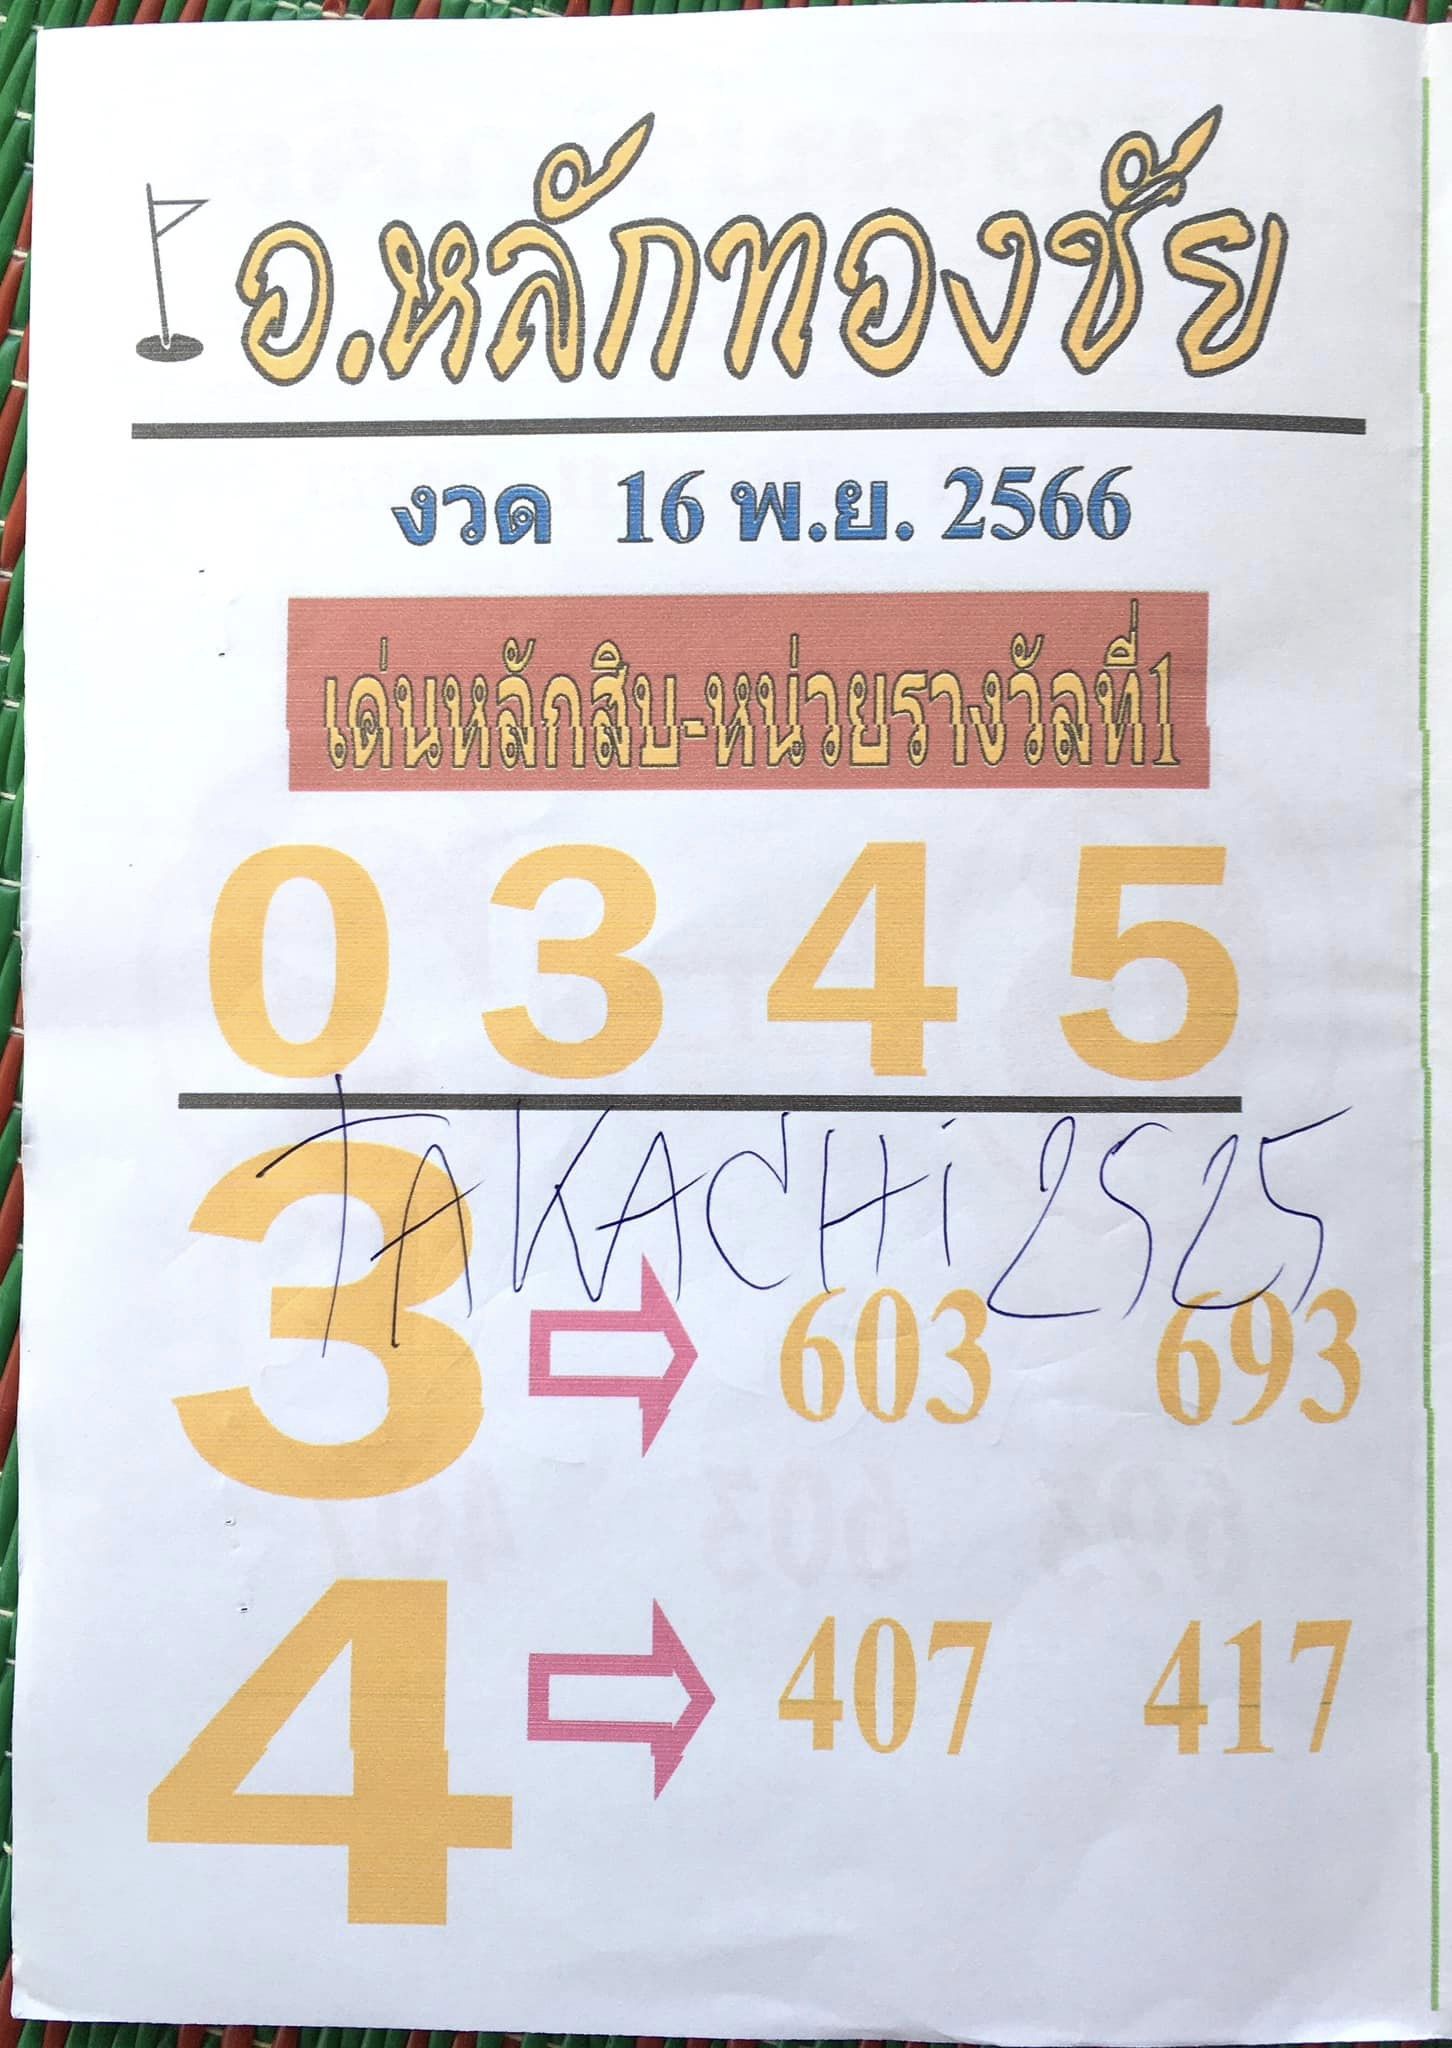 อ.หลักทองชัย
งวด 16 พ.ย. 2566
เด่นหลักสิบ-หน่วยรางวัลที่1
0 3 4 5
TAKACHi 2525
3 603 693
4 407 417